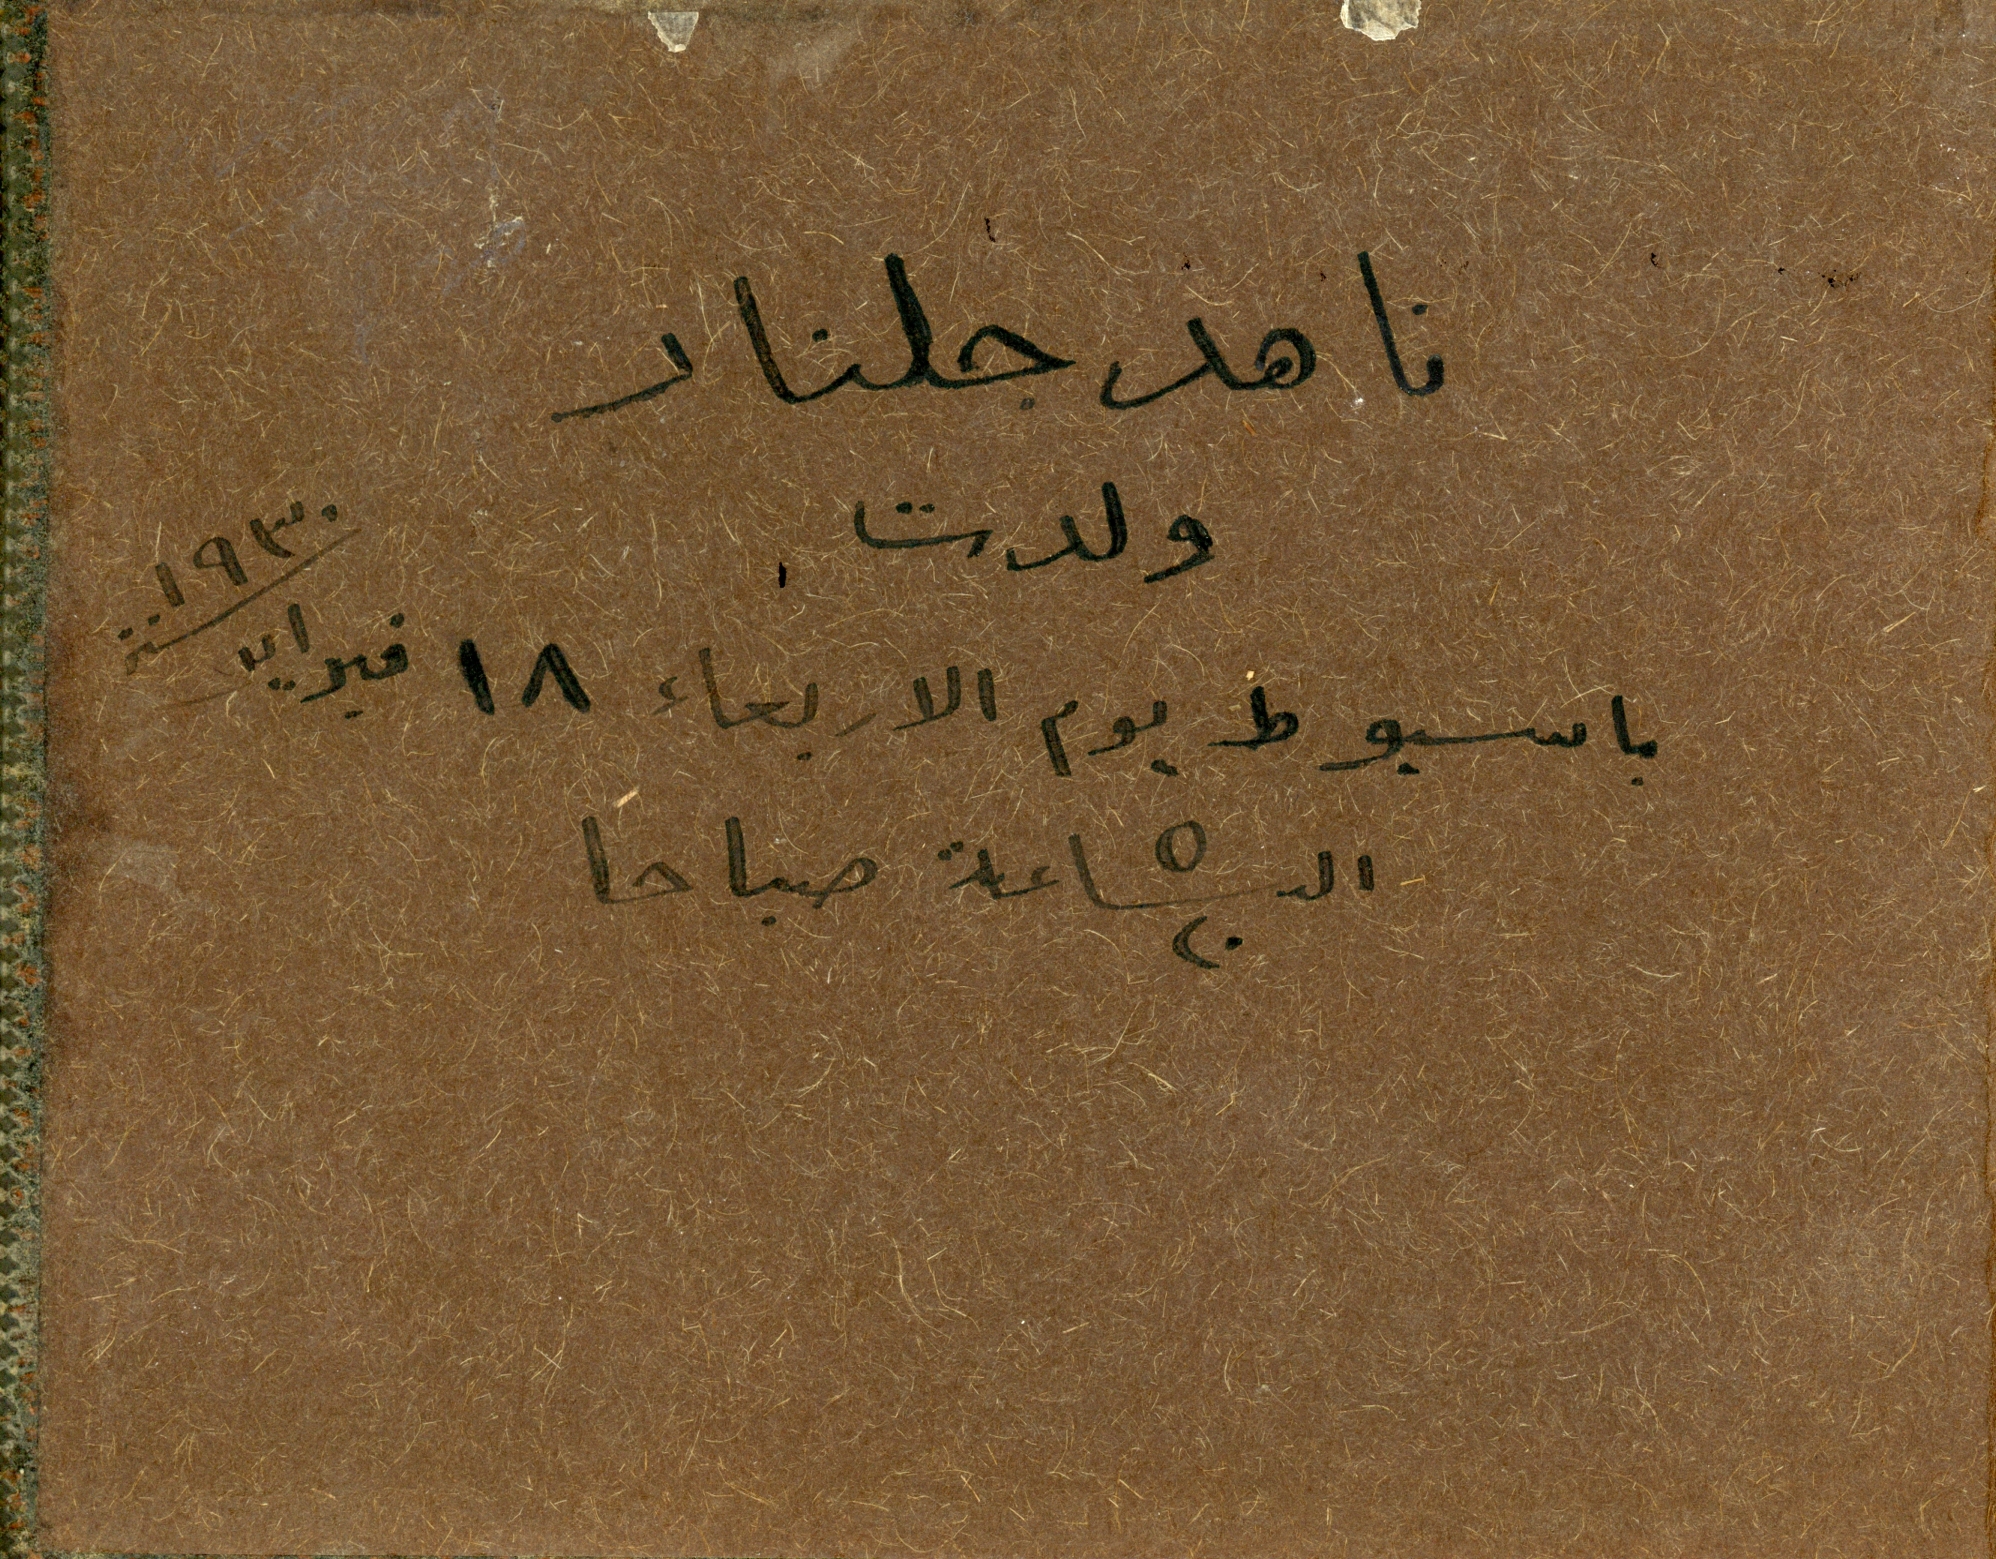 ناهد جلنار
ولدت
باسيوط يوم الاربعاء ١٨ فبراير سنة ١٩٣٠
الساعة ٥ صباحا